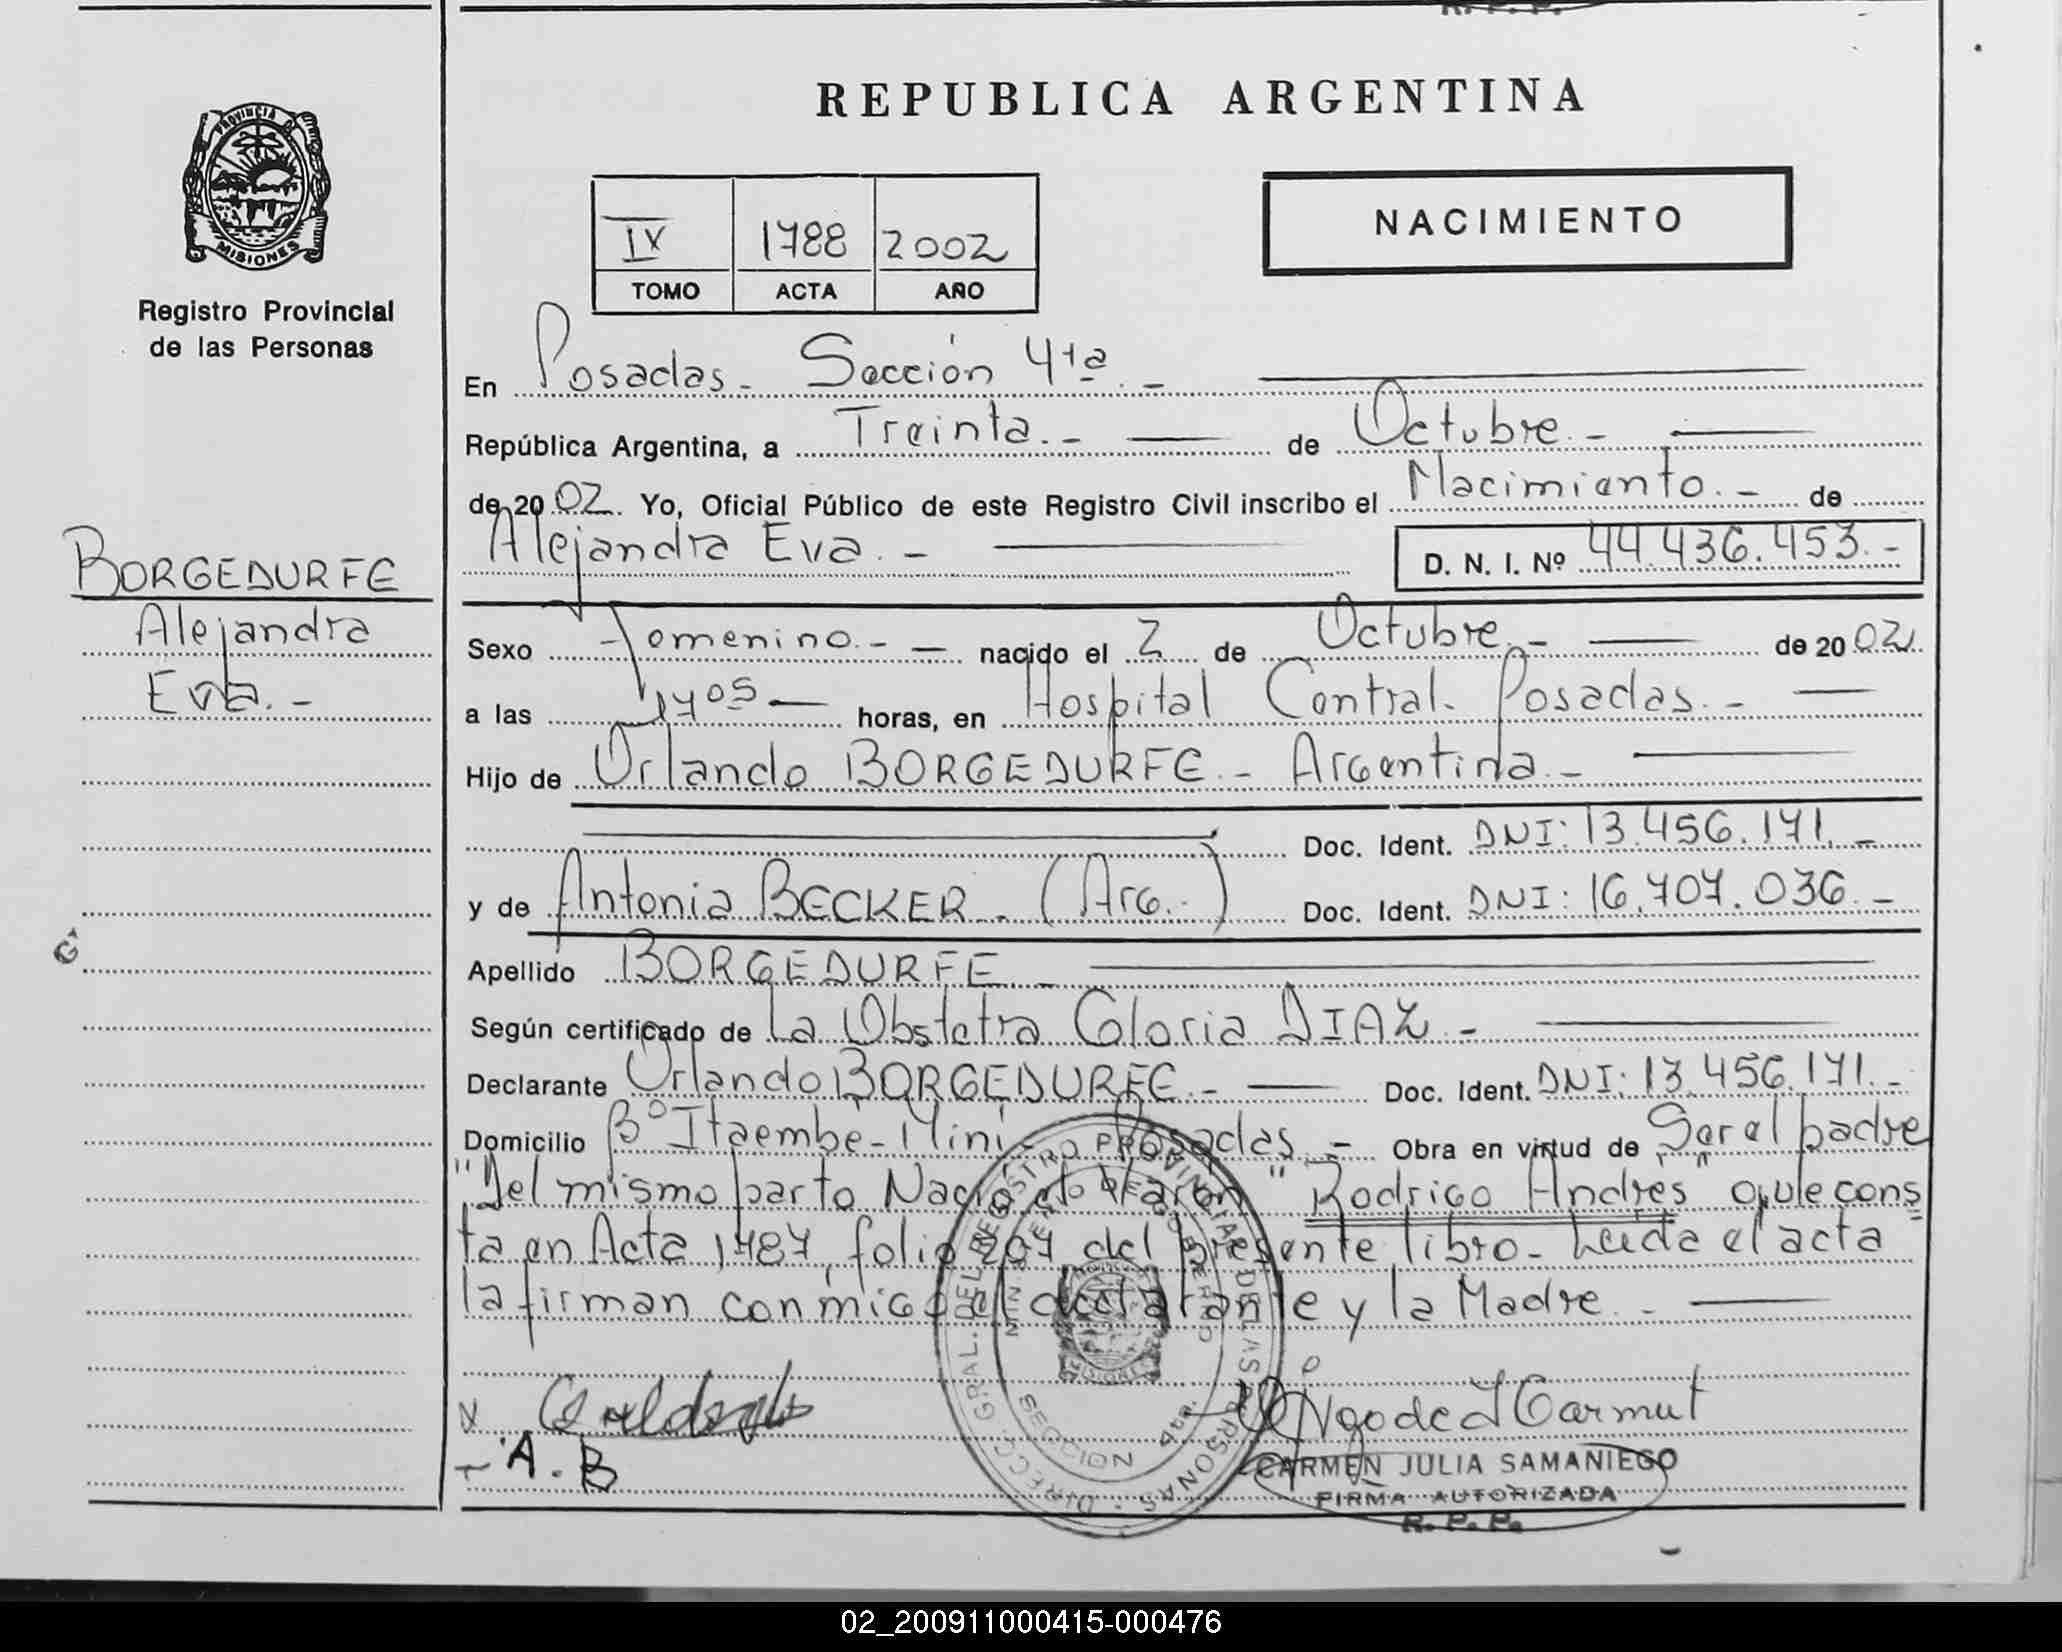 R. P. P.
REPUBLICA ARGENTINA
PROVINCIA DE
MISIONES
Registro Provincial
de las Personas
IV 1788 2002
TOMO ACTA AÑO
NACIMIENTO
En Posadas - Sección 4ta. -
República Argentina, a Treinta. - de Octubre. -
de 2002. Yo, Oficial Público de este Registro Civil inscribo el Nacimiento. - de
Alejandra Eva. - D. N. I. Nº 44.436.453. -
BORGEDURFE
Alejandra
Eva. -
Sexo Femenino. - nacido el 2 de Octubre. - de 2002.
a las 1405 horas, en Hospital Central. Posadas. -
Hijo de Orlando BORGEDURFE. - Argentina. -
Doc. Ident. DNI: 13.456.171. -
y de Antonia BECKER. (Arg.-) Doc. Ident. DNI: 16.707.036. -
Apellido BORGEDURFE. -
Según certificado de La Obstetra Gloria DIAZ. -
Declarante Orlando BORGEDURFE. - Doc. Ident. DNI: 13.456.171. -
Domicilio Bº Itaembé-Miní - Posadas. - Obra en virtud de Ser el padre
"Del mismo parto Nació el Varon" "Rodrigo Andres" que cons
ta en Acta 1787, folio 207 del presente libro - Leida el acta
la firman conmigo el declarante y la Madre. -
A. B
CARMEN JULIA SAMANIEGO
FIRMA AUTORIZADA
R. P. P.
DIRECC. GRAL. DEL REGISTRO PROVINCIAL DE LAS PERSONAS
SECCION 4ta.
02_200911000415-000476